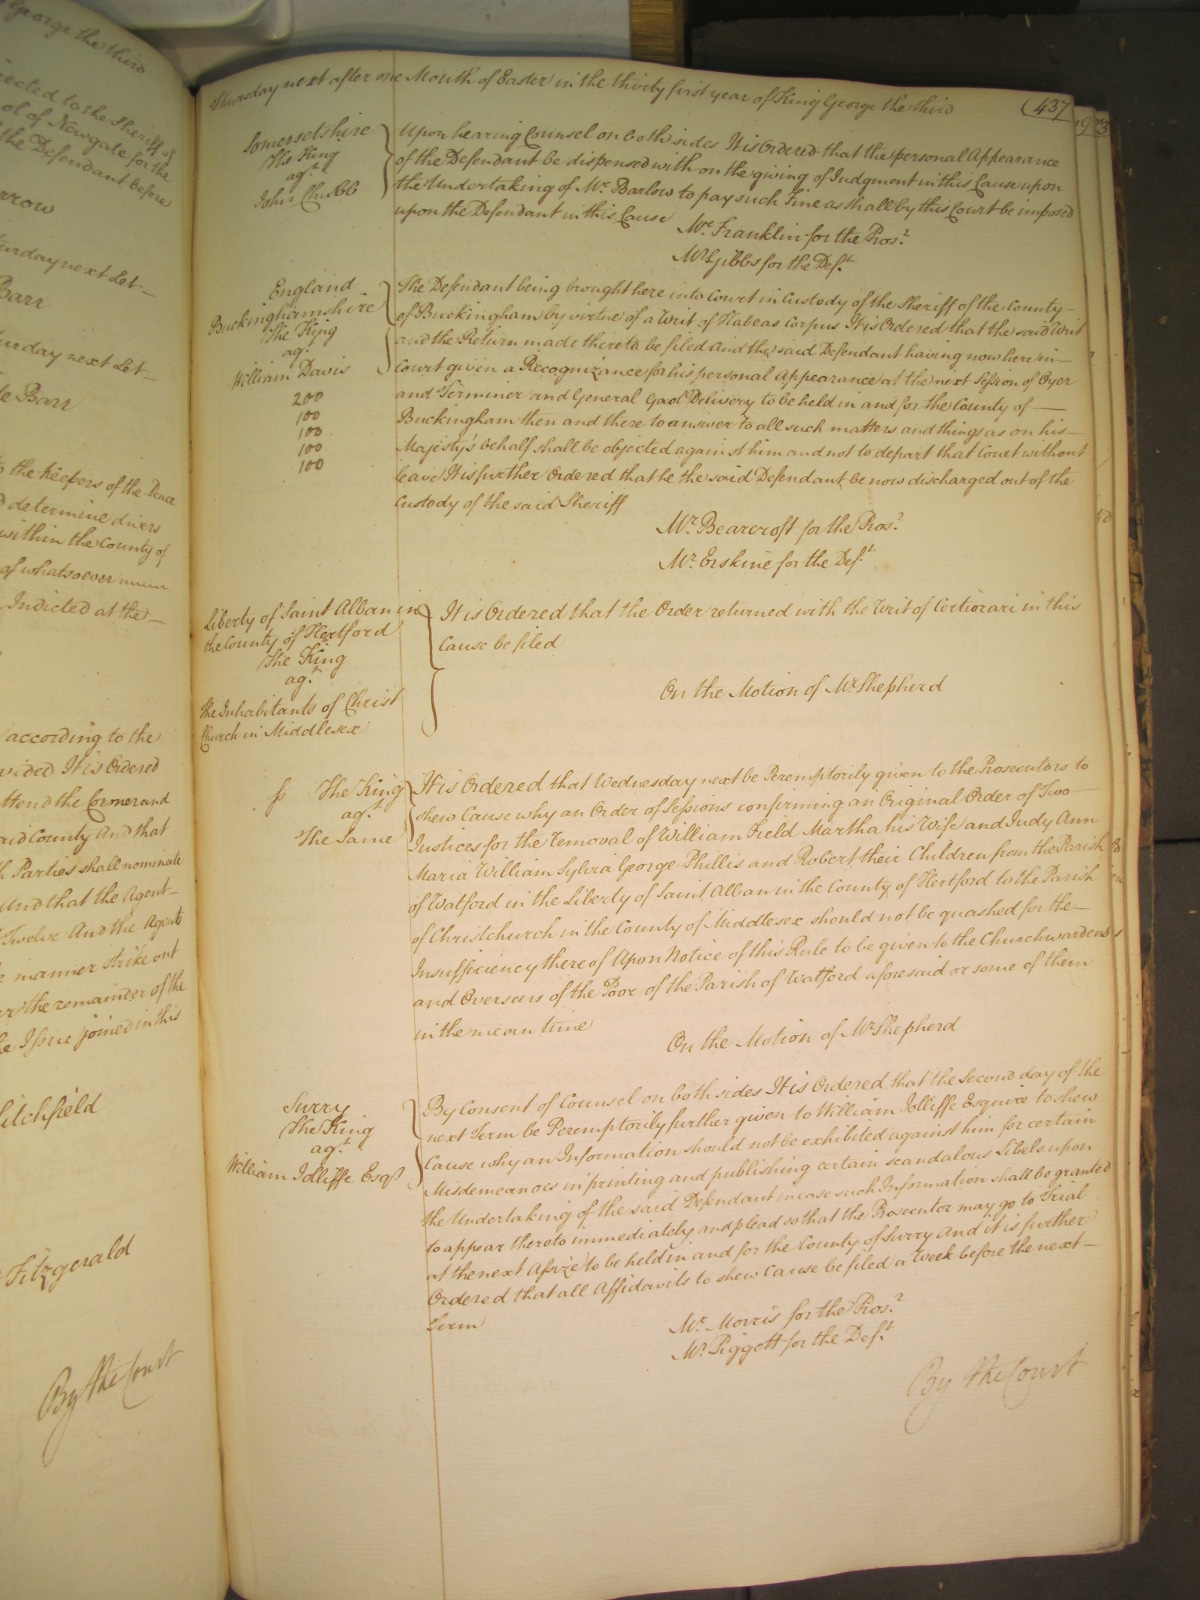 George the third
rected to the Sheriff of
ol of Newgate for the
the Defendant before
rrow
urday next Let
Barr
urday next Let
le Barr
to the Keepers of the Peace
d determine divers
within the County of
of whatsoever
Indicted at the
according to the
vided It is Ordered
ttend the Coroner and
aid County And that
h Parties shall nominate
And that the Agent
Twelve And the Agents
manner strike out
the remainder of the
he Issue joined in this
itchfield
Fitzgerald
By the Court
Thursday next after one Month of Easter in the thirty first year of King George the third
437
Somersetshire
The King
agt
John Chubb
Upon hearing Counsel on both sides It is Ordered that the personal Appearance
of the Defendant be dispensed with on the giving of Judgment in this Cause upon
the Undertaking of Mr. Barlow to pay such Fine as shall by this Court be imposed
upon the Defendant in this Cause
Mr. Franklin for the Prosr
Mr. Gibbs for the Deft
England
Buckinghamshire
The King
agt
William Davis
200
100
100
100
100
The Defendant being brought here into Court in Custody of the Sheriff of the County
of Buckingham by virtue of a Writ of Habeas Corpus It is Ordered that the said Writ
and the Return made thereto be filed And the said Defendant having now here in
Court given a Recognizance for his personal Appearance at the next Session of Oyer
and Terminer and General Gaol Delivery to be held in and for the County of
Buckingham then and there to answer to all such matters and things as on his
Majesty's behalf shall be objected against him and not to depart that Court without
leave It is further Ordered that he the said Defendant be now discharged out of the
Custody of the said Sheriff
Mr. Bearcroft for the Prosr
Mr. Erskine for the Deft
Liberty of Saint Alban in
the County of Hertford
The King
agt
The Inhabitants of Christ
Church in Middlesex
It is Ordered that the Order returned with the Writ of Certiorari in this
Cause be filed
On the Motion of Mr. Shepherd
The King
agt
The Same
It is Ordered that Wednesday next be Peremptorily given to the Prosecutors to
shew Cause why an Order of Sessions confirming an Original Order of Two
Justices for the Removal of William Field Martha his Wife and Judy Ann
Maria William Sylvia George Phillis and Robert their Children from the Parish
of Watford in the Liberty of Saint Alban in the County of Hertford to the Parish
of Christchurch in the County of Middlesex should not be quashed for the
Insufficiency thereof Upon Notice of this Rule to be given to the Churchwardens
and Overseers of the Poor of the Parish of Watford aforesaid or some of them
in the mean time
On the Motion of Mr. Shepherd
Surry
The King
agt
William Jolliffe Esqr
By Consent of Counsel on both sides It is Ordered that the Second day of the
next Term be Peremptorily further given to William Jolliffe Esquire to shew
Cause why an Information should not be exhibited against him for certain
Misdemeanors in printing and publishing certain scandalous Libels upon
the Undertaking of the said Defendant in case such Information shall be granted
to appear thereto immediately and plead so that the Prosecutor may go to Trial
at the next Assize to be held in and for the County of Surry And it is further
Ordered that all Affidavits to shew Cause be filed a Week before the next
Term
Mr. Morris for the Prosr
Mr. Piggott for the Deft
By the Court